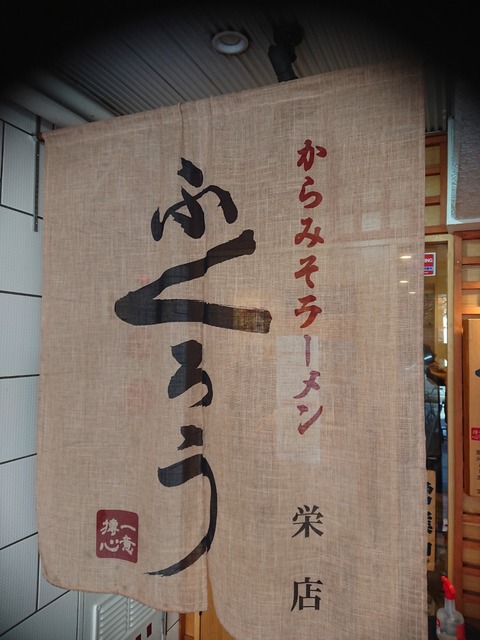 からみそラーメン
ふくろう
栄店
一意
専心